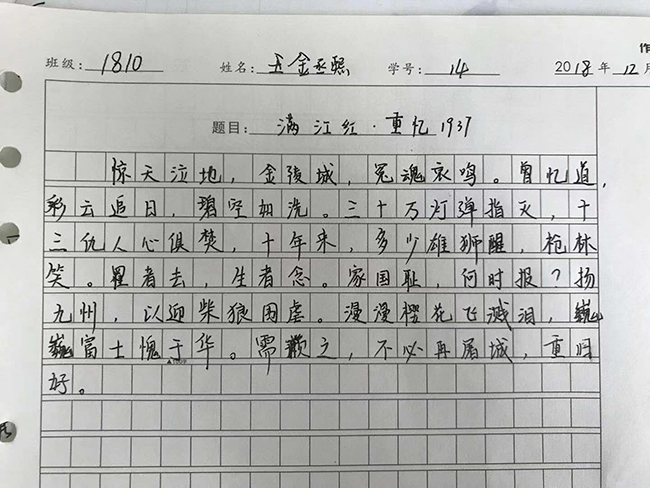 作
班级: 1810 姓名: 王金丞熙 学号: 14 2018年12月
题目: 满江红·重忆1937
惊天泣地，金陵城，冤魂哀鸣。曾忆道，
彩云追日，碧空如洗。三十万灯弹指灭，十
三亿人心俱焚，十年来，多少雄狮醒，枪林
笑。瞿者去，生者念。家国耻，何时报？扬
九州，以迎柴狼围虐。漫漫樱花飞溅泪，巍
巍富士愧于华。需颗之，不必再屠城，重归
好。